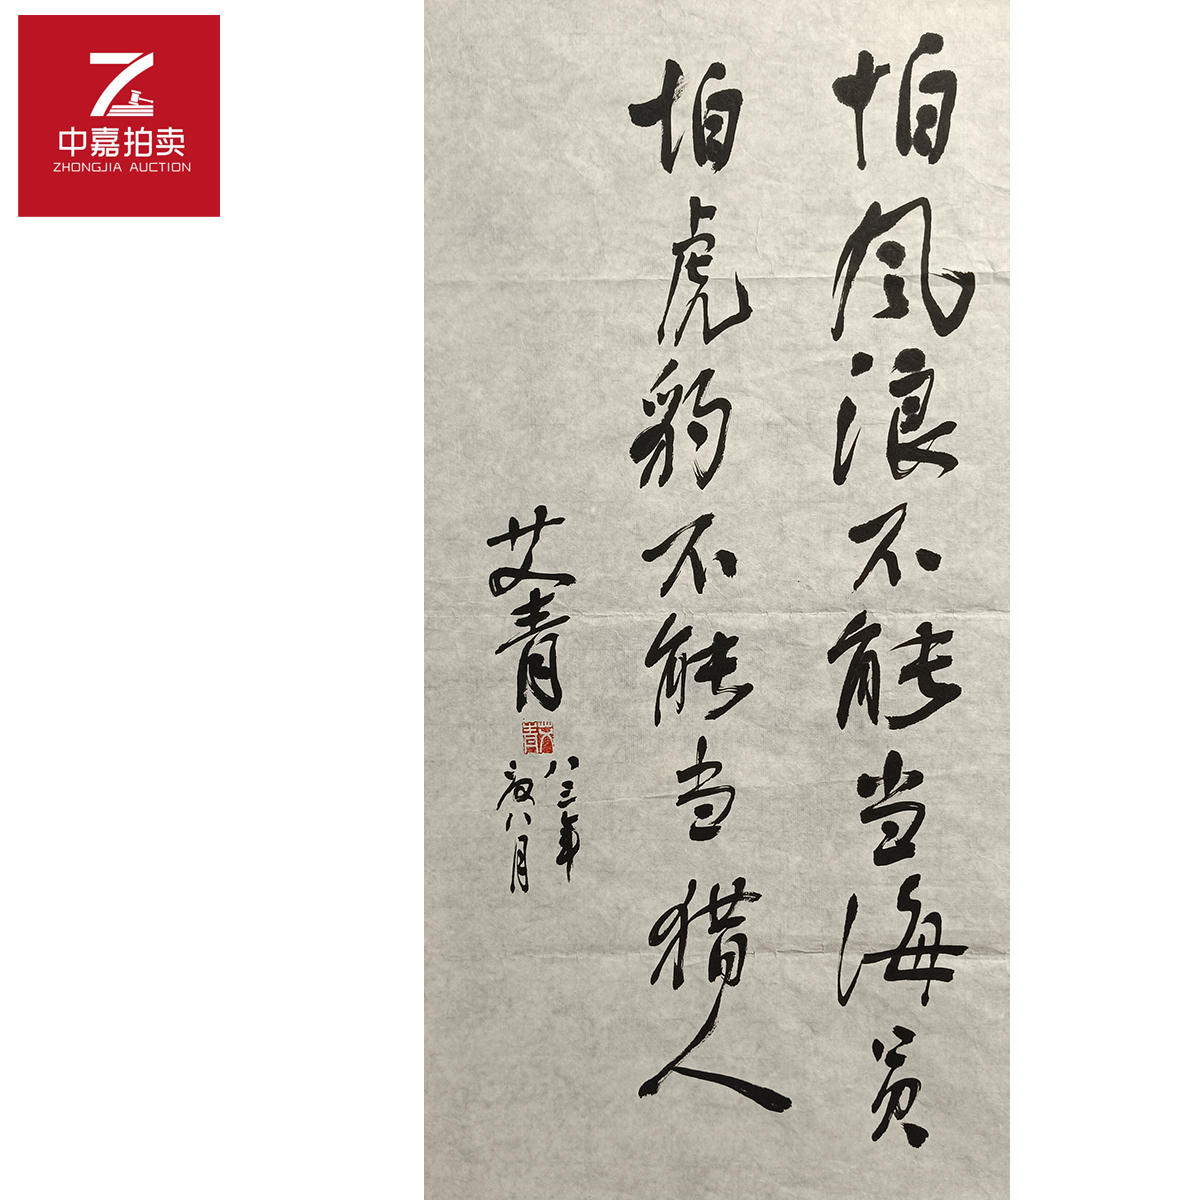 中嘉拍卖
ZHONGJIA AUCTION
怕风浪不能当海员
怕虎豹不能当猎人
艾青
艾青
八三年
八月